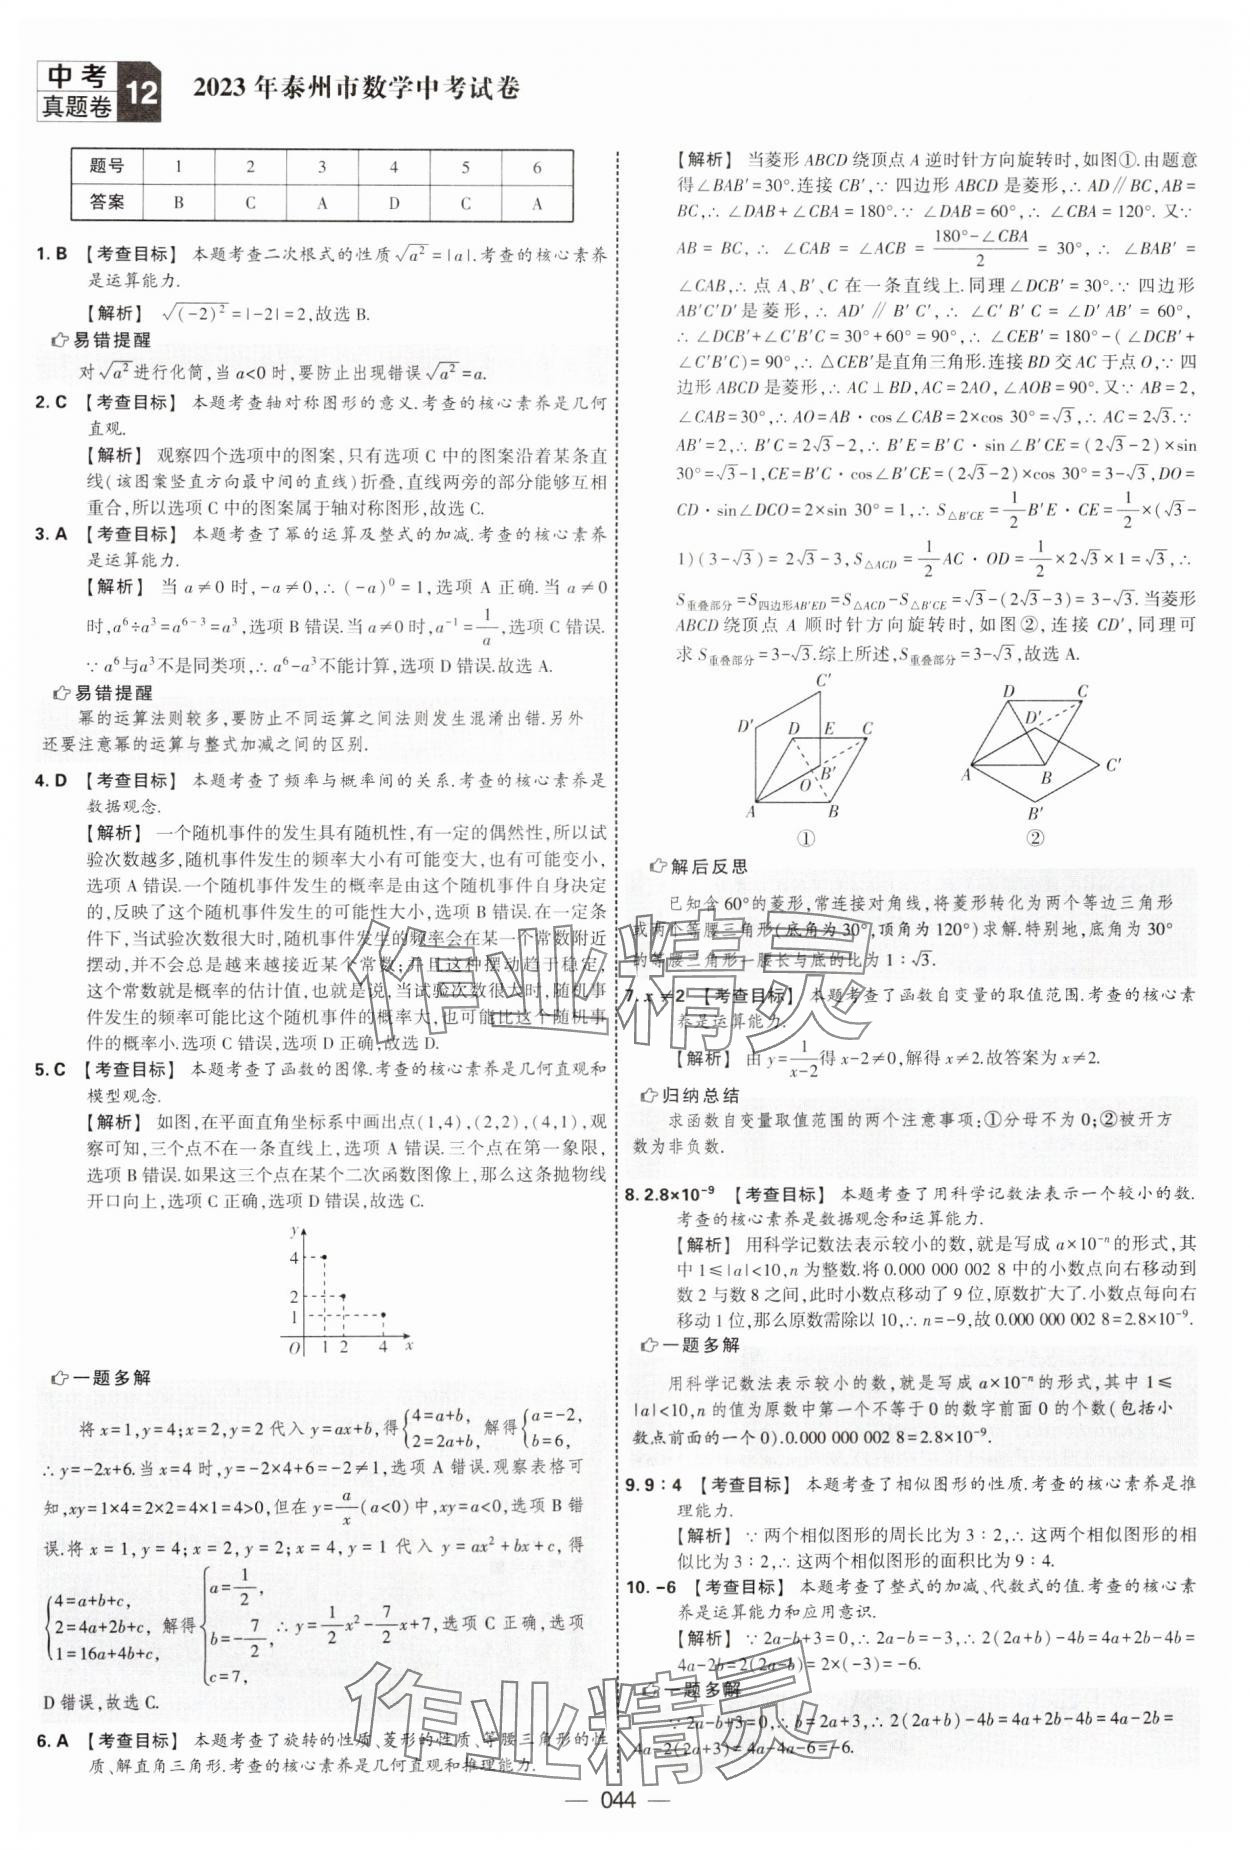 中考
真题卷
12
2023年泰州市数学中考试卷
题号 1 2 3 4 5 6
答案 B C A D C A
1. B 【考查目标】 本题考查二次根式的性质√a²=|a|.考查的核心素养
是运算能力.
【解析】 √(-2)²=|-2|=2,故选 B.
易错提醒
对√a²进行化简,当 a<0 时,要防止出现错误√a²=a.
2. C 【考查目标】 本题考查轴对称图形的意义.考查的核心素养是几何
直观.
【解析】 观察四个选项中的图案,只有选项 C 中的图案沿着某条直
线(该图案竖直方向最中间的直线)折叠,直线两旁的部分能够互相
重合,所以选项 C 中的图案属于轴对称图形,故选 C.
3. A 【考查目标】 本题考查了幂的运算及整式的加减.考查的核心素养
是运算能力.
【解析】 当 a≠0 时,-a≠0,∴(-a)⁰=1,选项 A 正确.当 a≠0
时,a⁶÷a³=a⁶⁻³=a³,选项 B 错误.当 a≠0 时,a⁻¹=1/a,选项 C 错误.
∵a⁶与a³不是同类项,∴a⁶-a³不能计算,选项 D 错误.故选 A.
易错提醒
幂的运算法则较多,要防止不同运算之间法则发生混淆出错.另外
还要注意幂的运算与整式加减之间的区别.
4. D 【考查目标】 本题考查了频率与概率间的关系.考查的核心素养是
数据观念.
【解析】 一个随机事件的发生具有随机性,有一定的偶然性,所以试
验次数越多,随机事件发生的频率大小有可能变大,也有可能变小,
选项 A 错误.一个随机事件发生的概率是由这个随机事件自身决定
的,反映了这个随机事件发生的可能性大小,选项 B 错误.在一定条
件下,当试验次数很大时,随机事件发生的频率会在某一个常数附近
摆动,并不会总是越来越接近某个常数;并且这种摆动趋于稳定,
这个常数就是概率的估计值,也就是说,当试验次数很大时,随机事
件发生的频率可能比这个随机事件的概率大,也可能比这个随机事
件的概率小.选项 C 错误,选项 D 正确,故选 D.
5. C 【考查目标】 本题考查了函数的图像.考查的核心素养是几何直观和
模型观念.
【解析】 如图,在平面直角坐标系中画出点(1,4),(2,2),(4,1),观
察可知,三个点不在一条直线上,选项 A 错误.三个点在第一象限,
选项 B 错误.如果这三个点在某个二次函数图像上,那么这条抛物线
开口向上,选项 C 正确,选项 D 错误,故选 C.
y
4
2
1
O 1 2 4 x
一题多解
将 x=1,y=4;x=2,y=2 代入 y=ax+b,得{4=a+b, 2=2a+b, 解得{a=-2, b=6,
∴y=-2x+6.当 x=4 时,y=-2×4+6=-2≠1,选项 A 错误.观察表格可
知,xy=1×4=2×2=4×1=4>0,但在 y=a/x(a<0)中,xy=a<0,选项 B 错
误.将 x=1,y=4;x=2,y=2;x=4,y=1 代入 y=ax²+bx+c,得
{4=a+b+c, 2=4a+2b+c, 1=16a+4b+c, 解得{a=1/2, b=-7/2, c=7, ∴y=1/2x²-7/2x+7,选项 C 正确,选项
D 错误,故选 C.
6. A 【考查目标】 本题考查了旋转的性质、菱形的性质、等腰三角形的性
质、解直角三角形.考查的核心素养是几何直观和推理能力.
【解析】 当菱形 ABCD 绕顶点 A 逆时针方向旋转时,如图①.由题意
得∠BAB′=30°.连接 CB′,∵四边形 ABCD 是菱形,∴AD∥BC,AB=
BC,∴∠DAB+∠CBA=180°.∵∠DAB=60°,∴∠CBA=120°.又∵
AB=BC,∴∠CAB=∠ACB=(180°-∠CBA)/2=30°,∴∠BAB′=
∠CAB,∴点 A、B′、C 在一条直线上.同理∠DCB′=30°.∵四边形
AB′C′D′是菱形,∴AD′∥B′C′,∴∠C′B′C=∠D′AB′=60°,
∴∠DCB′+∠C′B′C=30°+60°=90°,∴∠CEB′=180°-(∠DCB′+
∠C′B′C)=90°,∴△CEB′是直角三角形.连接 BD 交 AC 于点 O,∵四
边形 ABCD 是菱形,∴AC⊥BD,AC=2AO,∠AOB=90°.又∵AB=2,
∠CAB=30°,∴AO=AB·cos∠CAB=2×cos 30°=√3,∴AC=2√3.∵
AB′=2,∴B′C=2√3-2,∴B′E=B′C·sin∠B′CE=(2√3-2)×sin
30°=√3-1,CE=B′C·cos∠B′CE=(2√3-2)×cos 30°=3-√3,DO=
CD·sin∠DCO=2×sin 30°=1,∴S△B′CE=1/2B′E·CE=1/2×(√3-
1)(3-√3)=2√3-3,S△ACD=1/2AC·OD=1/2×2√3×1=√3,∴
S重叠部分=S四边形AB′ED=S△ACD-S△B′CE=√3-(2√3-3)=3-√3.当菱形
ABCD 绕顶点 A 顺时针方向旋转时,如图②,连接 CD′,同理可
求 S重叠部分=3-√3.综上所述,S重叠部分=3-√3,故选 A.
C′
D′ D E C
O B′
A B
①
D C
D′
A B C′
B′
②
解后反思
已知含 60°的菱形,常连接对角线,将菱形转化为两个等边三角形
或两个等腰三角形(底角为 30°,顶角为 120°)求解.特别地,底角为 30°
的等腰三角形—腰长与底的比为 1∶√3.
7. x≠2 【考查目标】 本题考查了函数自变量的取值范围.考查的核心素
养是运算能力.
【解析】 由 y=1/(x-2)得 x-2≠0,解得 x≠2.故答案为 x≠2.
归纳总结
求函数自变量取值范围的两个注意事项:①分母不为 0;②被开方
数为非负数.
8. 2.8×10⁻⁹ 【考查目标】 本题考查了用科学记数法表示一个较小的数.
考查的核心素养是数据观念和运算能力.
【解析】 用科学记数法表示较小的数,就是写成 a×10⁻ⁿ的形式,其
中 1≤|a|<10,n 为整数.将 0.000 000 002 8 中的小数点向右移动到
数 2 与数 8 之间,此时小数点移动了 9 位,原数扩大了.小数点每向右
移动 1 位,那么原数需除以 10,∴n=-9,故 0.000 000 002 8=2.8×10⁻⁹.
一题多解
用科学记数法表示较小的数,就是写成 a×10⁻ⁿ的形式,其中 1≤
|a|<10,n 的值为原数中第一个不等于 0 的数字前面 0 的个数(包括小
数点前面的一个 0).0.000 000 002 8=2.8×10⁻⁹.
9. 9∶4 【考查目标】 本题考查了相似图形的性质.考查的核心素养是推
理能力.
【解析】 ∵两个相似图形的周长比为 3∶2,∴这两个相似图形的相
似比为 3∶2,∴这两个相似图形的面积比为 9∶4.
10. -6 【考查目标】 本题考查了整式的加减、代数式的值.考查的核心素
养是运算能力和应用意识.
【解析】 ∵2a-b+3=0,∴2a-b=-3,∴2(2a+b)-4b=4a+2b-4b=
4a-2b=2(2a-b)=2×(-3)=-6.
一题多解
∵2a-b+3=0,∴b=2a+3,∴2(2a+b)-4b=4a+2b-4b=4a-2b=
4a-2(2a+3)=4a-4a-6=-6.
作业精灵
作业精灵
— 044 —